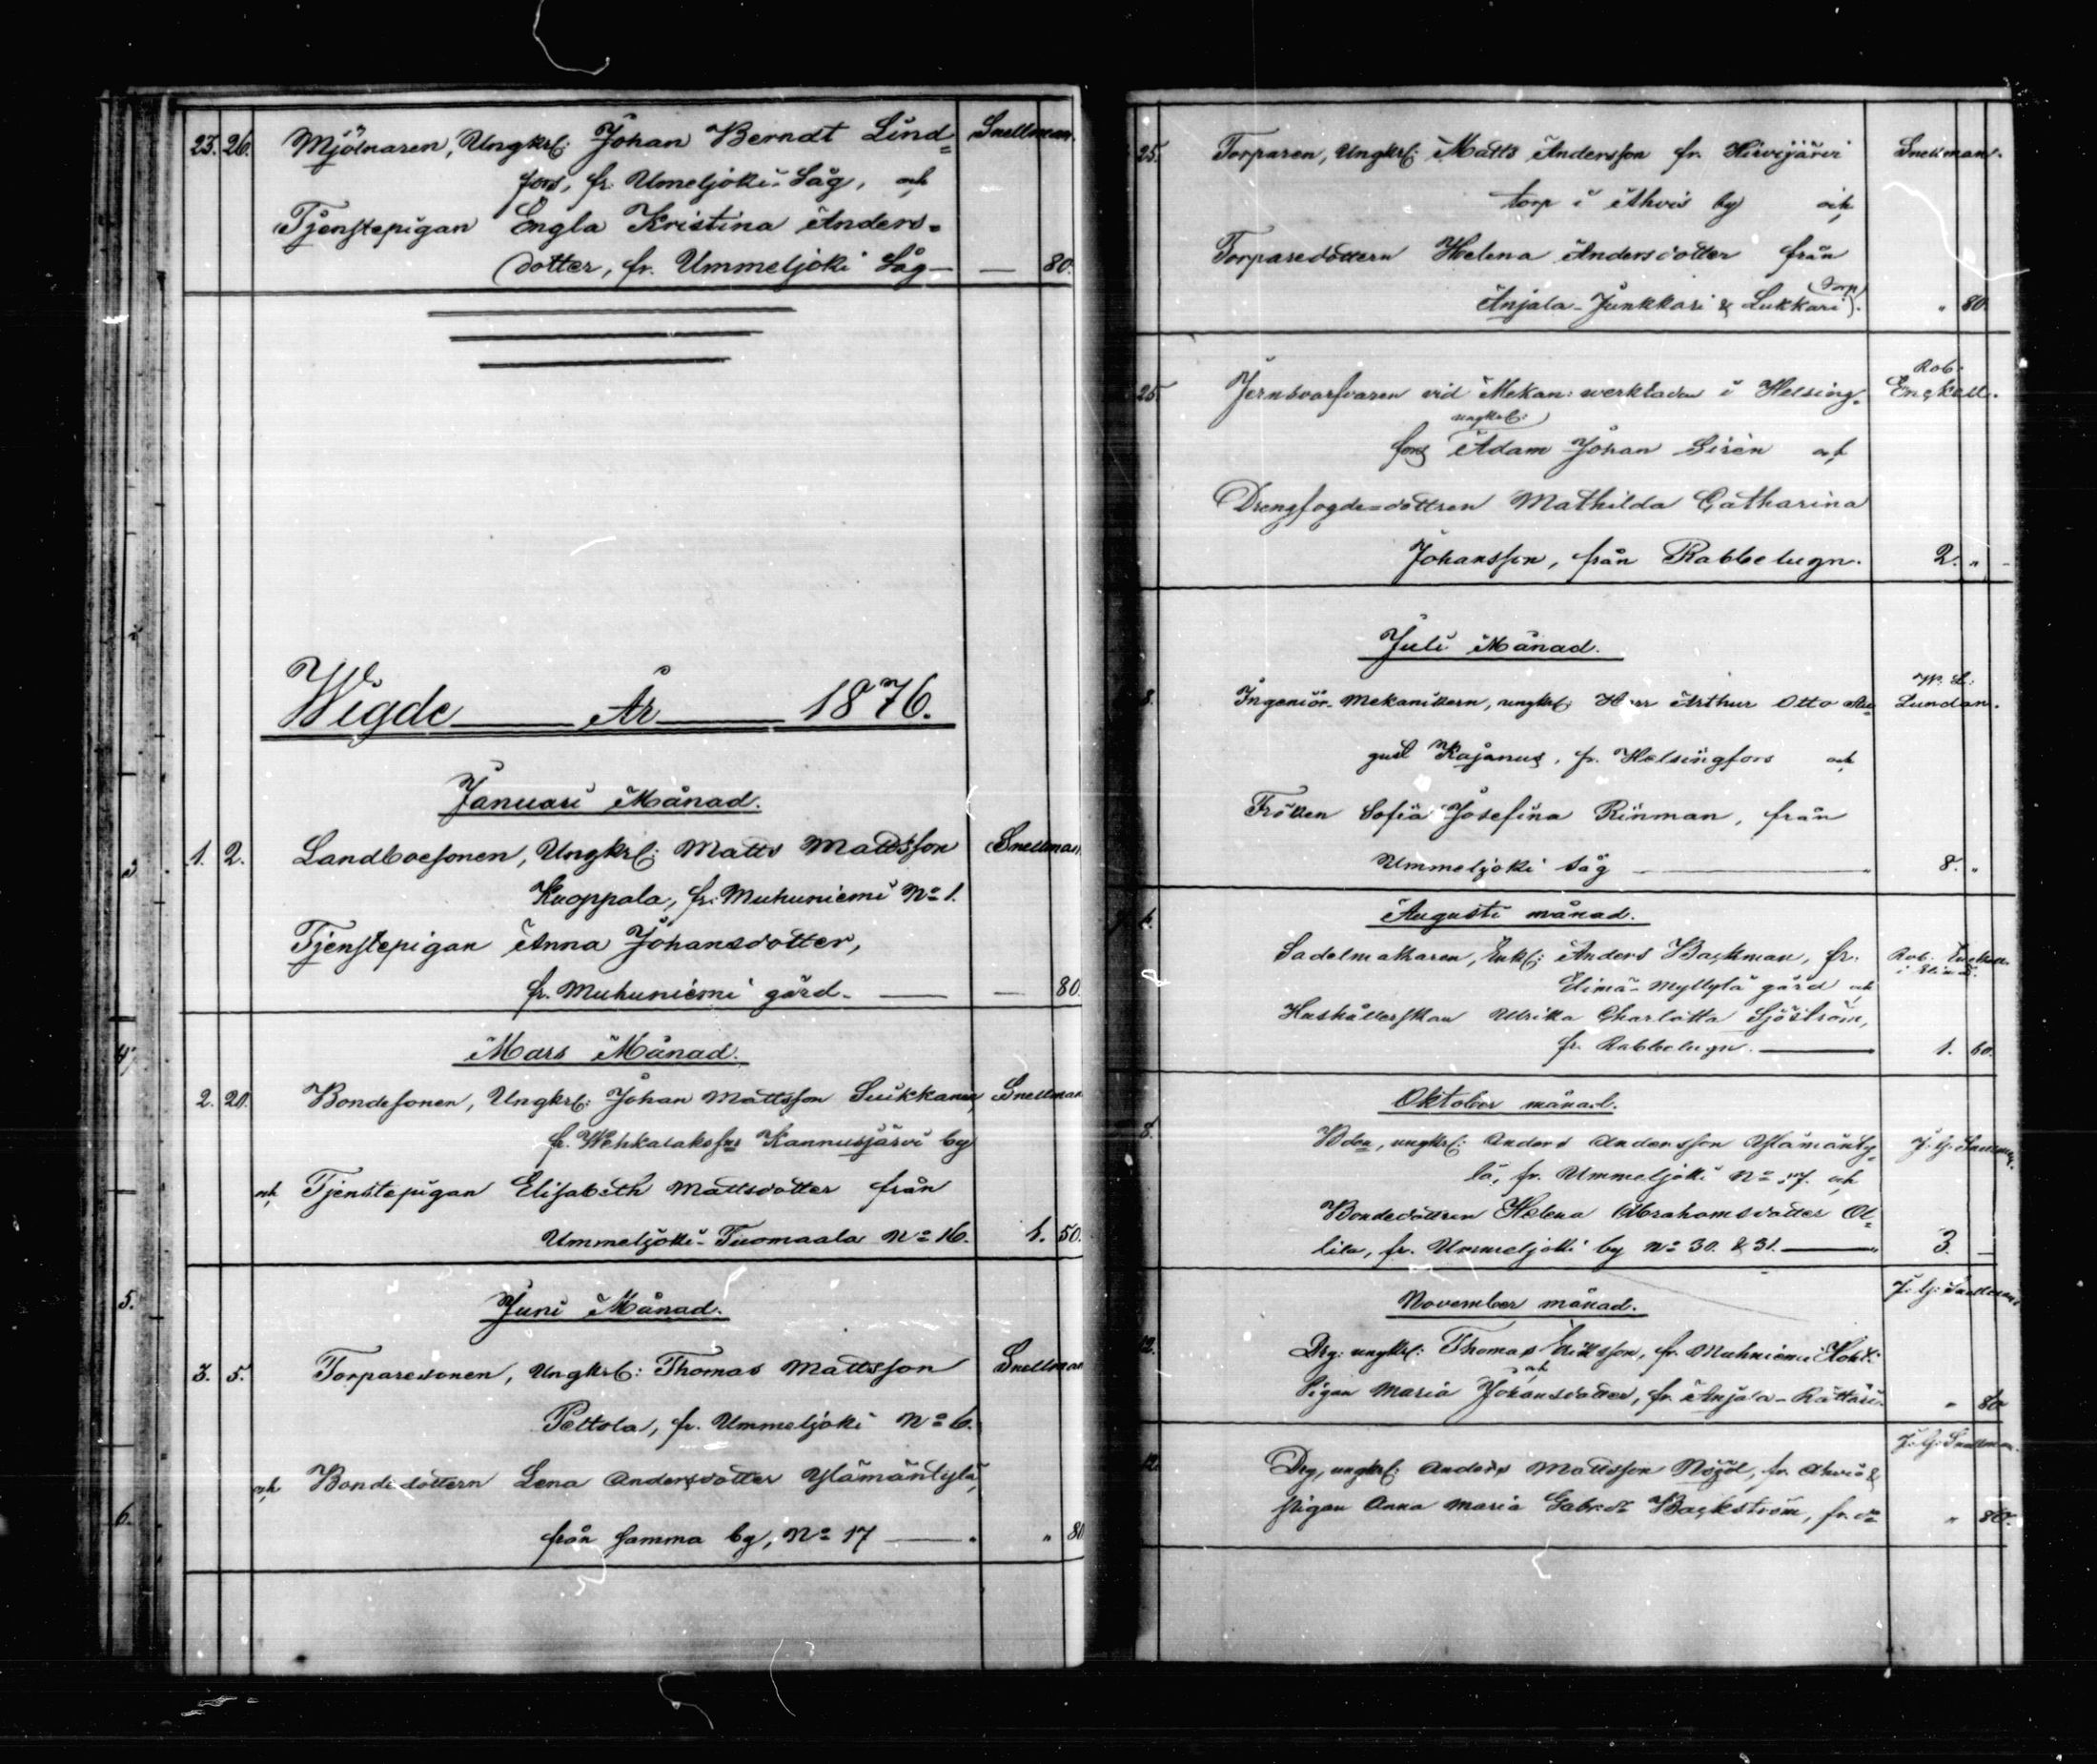 23. 26. Mjölnaren, Ungkrl: Johan Berndt Lind= Snellman.
fors, fr. Umeljoki Såg, och
Tjenstepigan Engla Kristina Anders=
dotter, fr. Ummeljoki Såg — — 80.
Wigde År 1876.
Januari Månad.
1. 2. Landboesonen, Ungkrl: Matts Mattsson Snellman
Kuoppala, fr. Muhuniemi No 1.
Tjenstepigan Anna Johansdotter,
fr. Muhuniemi gård. — — 80.
Mars Månad.
2. 20. Bondesonen, Ungkrl: Johan Mattsson Suikkanen, Snellman
fr. Wehkalaks Kannusjärvi by
och Tjenstepigan Elisabeth Mattsdotter från
Ummeljoki-Tuomaala No 16. 1. 50.
Juni Månad.
3. 5. Torparesonen, Ungkrl: Thomas Mattsson Snellman
Peltola, fr. Ummeljoki No 6.
och Bondedottern Lena Andersdotter Ylämäntylä,
från samma by, No 17 — " 80
3
4.
5.
6.
25. Torparen, Ungkrl: Matts Andersson fr. Hirvijärvi Snellman.
torp i Ahvis by och
Torparedottern Helena Andersdotter från
Anjala-Junkkari & Lukkari (torp). " 80.
25. Jernsvarfvaren vid Mekan: werkstaden i Helsing= Rob. Enckell.
fors ungkrl: Adam Johan Sirén och
Drengfogde=dottren Mathilda Catharina
Johansson, från Rabbelugn. 2. " -
Juli Månad.
8. Ingeniör-Mekanikern, ungkrl: Herr Arthur Otto Au= W. L: Lundan.
gust Kajanus, fr. Helsingfors och
Fröken Sofia Josefina Rinman, från
Ummeljoki såg — 8. "
Augusti månad.
Sadelmakaren, Enkl: Anders Backman, fr. Rob. Enckell
Elimä-Myllylä gård och
Hushållerskan Ulrika Charlotta Sjöström,
fr. Rabbelugn. — 1. 60.
Oktober månad.
8. Bden, ungkrl: Anders Andersson Ylämänty= J. G. Snellman.
lä, fr. Ummeljoki No 17. och
Bondedottren Helena Abrahamsdotter Ol=
lila, fr. Ummeljoki by No 30. & 31. — 3. —
November månad. J. G. Snellman
12. Drg: ungkrl: Thomas Eriksson, fr. Muhniemi Koht:
och
Pigan Maria Johansdotter, fr. Anjala-Rättäri. " 80
J. G. Snellman.
12. Drg, ungkrl: Anders Mattsson, fr. Ahvis &
pigan Anna Maria Gabr:dr Backström, fr. do " 80.